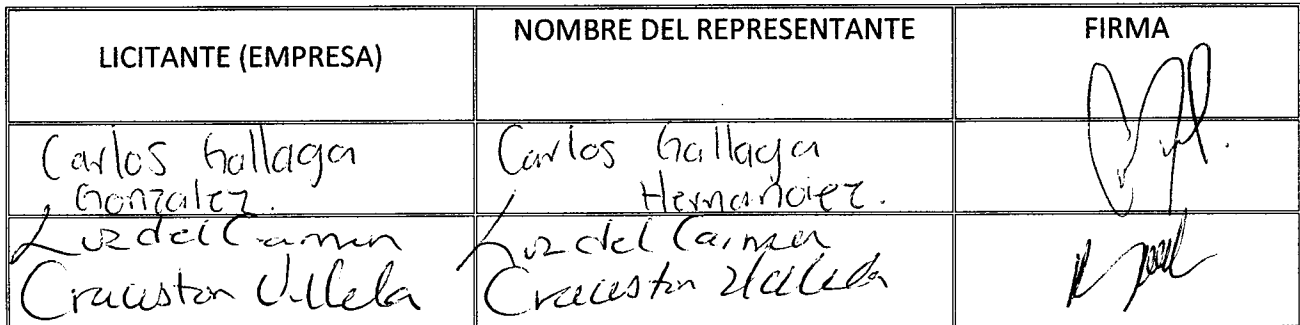 LICITANTE (EMPRESA)
NOMBRE DEL REPRESENTANTE
FIRMA
Carlos Gallaga
Gonzalez.
Carlos Gallaga
Hernandez.
Luz del Carmen
Villela
Luz del Carmen